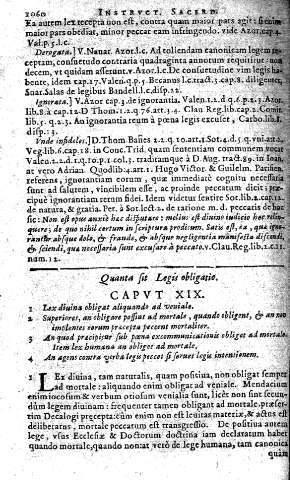 1060 INSTRUCT. SACERD.
Ea autem lex recepta non est, contra quam maior pars agit: si enim
maior pars obediat, minor peccat eam infringendo. vide Azor cap. 4.
Val. p. 5. l. c.
Derogata.] V. Nauar. Azor. l. c. Ad tollendam canonicam legem re-
ceptam, consuetudo contraria quadraginta annorum requiritur: non
decem, vt quidam asserunt. v. Azor. l. c. De consuetudine vim legis ha-
bente, idem cap. 17. Valen. q. p. 3. Becanus l. c. tract. 3. cap. 8. diligenter,
Suar. Salas de legibus Bandell. l. c. disp. 12.
Ignorata.] V. Azor cap. 3. de ignorantia, Valen. t. 2. d. q. p. 3. Azor
lib. 8. à cap. 12. D. Thom. 1. 2. q. 76. art. 3. 4. Clau Reg. lib. cap. 2. Comit.
lib. 3. q. 20. An ignorantia reum à pœna legis excuset, Carbo. lib. 1.
disp. 13.
Vnde infideles.] D. Thom Bañes 2. 2. q. 10. art. 1. Sot. 4. d. 5. q. vn. ar. 2.
Veg. lib. 6. cap. 18. in Conc. Trid. quam sententiam communem vocat
Valen. t. 2. d. 1. q. 10. p. 1. col. 3. traditurque à D. Aug. tract. 89. in Ioan,
at vero Adrian. Quodlib. 4. art. 1. Hugo Victor. & Guilelm. Parisien.
referunt, ignorantiam eorum, quæ immediatè cognita necessaria
sunt ad salutem, vincibilem esse, ac proinde peccatum dicit: præ-
cipuè ignorantiam rerum fidei. Idem videtur sentire Sot. lib. 2. cap. 12.
de natura, & gratia. Per. à Sot. lect. 2. de ratione m. d. peccatis de hac
sic: Non est opus autem hoc disputare: melius est diuino iudicio hoc relin-
quere; de quo nihil certum in scriptura proditum. Satis est, ea, quæ igno-
rantur absque dolo, & fraude, & absque negligentia manifesta discendi,
& sciendi, quæ necessaria sunt excusare à peccato. v. Clau. Reg. lib. 1. c. 21.
num. 12.
Quanta sit Legis obligatio.
CAPVT XIX.
1 Lex diuina obligat aliquando ad veniale.
2 Superiores, an obligare possint ad mortale, quando obligent, & an no-
lentes eorum præcepta peccent mortaliter.
3 An quod præcipitur sub pœna excommunicationis obliget ad mortale.
Item lex humana an obliget ad mortale.
4 An agens contra verba legis peccet si seruet legis intentionem.
1 LEx diuina, tam naturalis, quam positiua, non obligat semper
ad mortale: aliquando enim obligat ad veniale. Mendacium
enim iocosum & verbum otiosum venialia sunt, licèt non sint secun-
dùm legem diuinam: frequenter tamen obligant ad mortale. præser-
tim Decalogi præcepta: cùm enim non est leuitas materiæ, & actus est
deliberatus, mortale peccatum est transgressio. De positiua autem
lege, vsus Ecclesiæ & Doctorum doctrina iam declaratum habet
quando mortale, quando non: at vero de lege humana, tam canonica
quàm